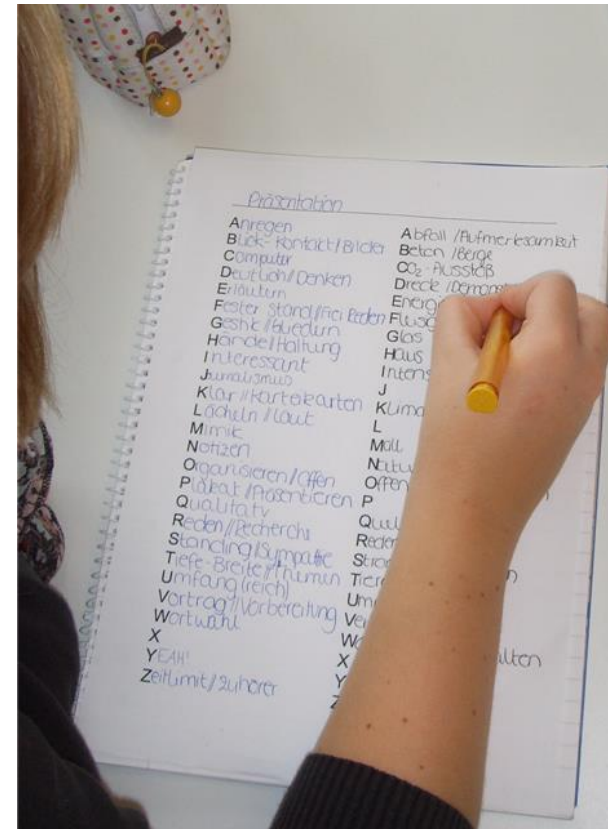 Präsentation
Anregen
Blick-Kontakt/Bilder
Computer
Deutlich/Denken
Erläutern
Fester Stand/Frei Reden
Gestik/Gliedern
Handel/Haltung
Interessant
Jurnalismus
Klar/Karteikarten
Lächeln/Laut
Mimik
Notizen
Organisieren/Offen
Plakat/Präsentieren
Qualitativ
Reden/Recherche
Standing/Sympathie
Tiefe-Breite/Themen
Umfang(reich)
Vortrag/Vorbereitung
Wortwahl
X
YEAH!
Zeitlimit/Zuhörer
Abfall/Aufmerksamkeit
Beton/Berge
CO₂-Ausstoß
Drecke
Energi
F
Glas
Haus
Intens
J
Klima
L
Müll
Natu
Offen
P
Q
Reden
Stro
Tier
Um
Ve
W
X alten
Y
Z